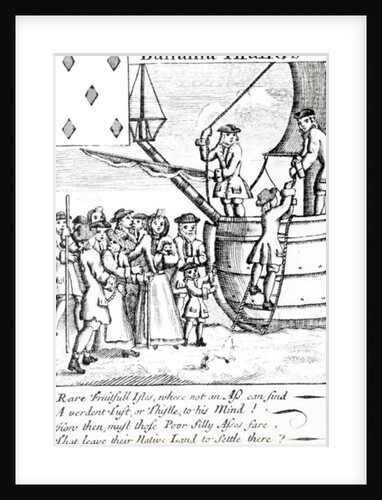 Bahama Islands
Rare Fruitfull Isles, where not an Ass can find
A verdent Tuft, or Thistle, to his Mind!
How then, must those Poor Silly Asses fare,
That leave their Native Land to Settle there?